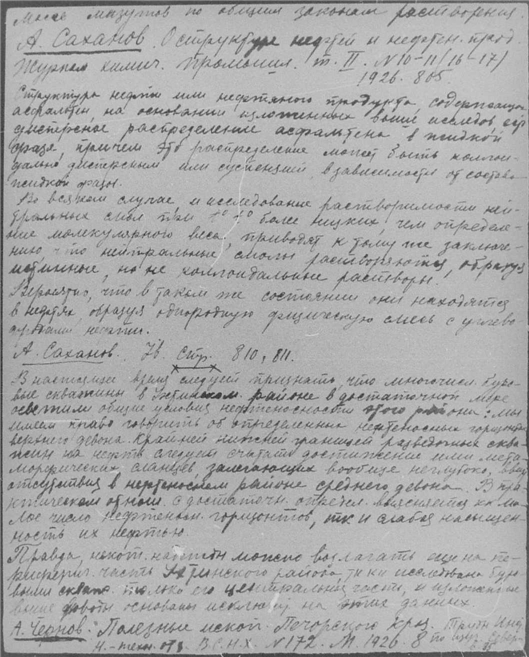 Масле мазутов по общим законам растворения
А. Саханов. О структуре нефтей и нефтян. прод
Журнал химич. промышл. т. II. N 10-11 (16-17)
1926. 805
Структура нефти или нефтяного продукта, содержащ.
асфальтен, на основании изложенных выше исследов. есть
дисперсное распределение асфальтена в жидкой
фазе, причем это распределение может быть коллои-
дально дисперсным или суспензией, в зависимости от состава
жидкой фазы.
Во всяком случае, и исследование растворимости ней-
тральных смол при t° t° более низких, чем определе-
ние молекулярного веса, приводят к тому же заключе-
нию, что нейтральные смолы растворяются, образуя
истинные, но не коллоидальные растворы.
Вероятно, что в таком же состоянии они находятся
в нефтях, образуя однородную физическую смесь с углево-
дородами нефти.
А. Саханов. Ib. стр. 810, 811.
В настоящее время следует признать, что многочисл. буро-
вые скважины в Ухтинском районе в достаточной мере
осветили общие условия нефтеносности этого района: мы
имеем право говорить об определенных нефтеносных горизонт.
верхнего девона. Крайней нижней границей разведочных сква-
жин на нефть следует считать достижение ими мета-
морфических сланцев, залегающих вообще неглубоко, ввиду
отсутствия в нефтеносном районе среднего девона. В пра-
ктическом отнош. с достаточн. определ. выясняется как ма-
лое число нефтеносн. горизонтов, так и слабая насыщен-
ность их нефтью.
Правда, некот. надежды можно возлагать еще на пе-
риферич. часть Ухтинского района, т.к. исследована буро-
выми скваж. только его центральная часть, и изложенные
выше выводы основаны исключ. на этих данных
А. Чернов. Полезные ископ. Печорского края. Труды
Н.-техн. отд. В.С.Н.Х. N 172. М 1926. 8